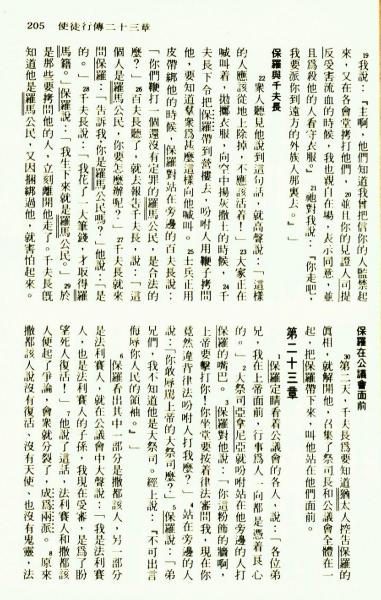 205 使徒行傳二十三章
19我說：『主啊，他們知道我曾把信你的人監禁起
來，又在各會堂拷打他們，20並且你的見證人司提
反受害流血的時候，我也親自在場，表示同意，並
且爲殺他的人看守衣服。』21祂對我說：『你走吧，
我要派你到遠方的外族人那裏去。』」
保羅與千夫長
22衆人聽見他說到這句話，就高聲說：「這樣
的人應該從地上除掉，不應該活着！」23大家正在
喊叫着，拋擲衣服，向空中揚灰撒土的時候，24千
夫長下令把保羅帶到營樓去，吩咐人用鞭子拷問
他，要知道羣衆爲甚麼這樣向他喊叫。25士兵正用
皮帶綁他的時候，保羅對站在旁邊的百夫長說：
「你們鞭打一個還沒有定罪的羅馬公民，是合法的
麼？」26百夫長聽了，就去報告千夫長，說：「這
個人是羅馬公民，你要怎麼辦呢？」27千夫長就來
問保羅：「告訴我，你是羅馬公民嗎？」他說：「是
的。」28千夫長說：「我花了一大筆錢，才取得羅
馬籍。」保羅說：「我生下來就是羅馬公民。」29於
是那些要拷問他的人，立刻離開他走了。千夫長旣
知道他是羅馬公民，又因捆綁過他，就害怕起來。
保羅在公議會面前
30第二天，千夫長爲要知道猶太人控告保羅的
眞相，就解開他，召集了祭司長和公議會全體在一
起，把保羅帶下來，叫他站在他們面前。
第二十三章
保羅定睛看着公議會的人，說：「各位弟
兄，我在上帝面前，行事爲人一向都是憑着良心
的。」2大祭司亞拿尼亞就吩咐站在他旁邊的人打
保羅的嘴巴。3保羅對他說：「你這粉飾的牆啊，
上帝要擊打你！你坐堂要按着律法審問我，現在你
竟然違背律法吩咐人打我麼？」4站在旁邊的人
說：「你敢辱罵上帝的大祭司麼？」5保羅說：「弟
兄們，我不知道他是大祭司。經上說：『不可出言
侮辱你人民的領袖。』」
6保羅看出其中一部分是撒都該人，另一部分
是法利賽人，就在公議會中大聲說：「我是法利賽
人，也是法利賽人的子孫，我現在受審，是爲了盼
望死人復活！」7他說了這話，法利賽人和撒都該
人便起了爭論，會衆就分裂了，成爲兩派。8原來
撒都該人說沒有復活，沒有天使，也沒有鬼靈，法